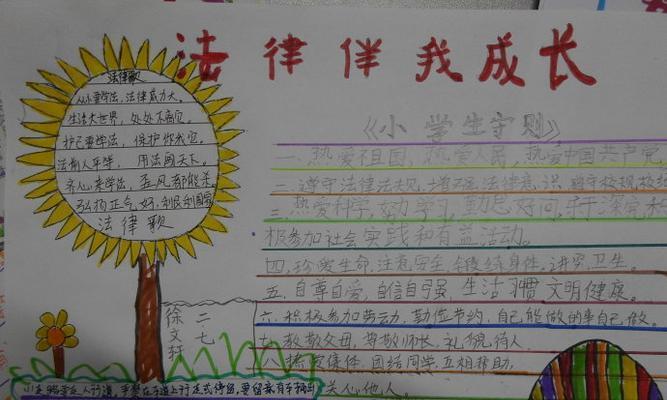 法律伴我成长
法律歌
从小要学法，法律威力大。
生活大世界，处处不离它。
护己要学法，保护你我它。
法前人平等，用法闯天下。
齐心来学法，歪风都能杀。
弘扬正气好，利民利国家
法律歌
《小学生守则》
一、热爱祖国，热爱人民，热爱中国共产党
二、遵守法律法规，增强法律意识。遵守校规校
三、热爱科学，努力学习，勤思好问，乐于探究，积
极参加社会实践和有益活动。
四、珍爱生命，注意安全，锻练身体，讲究卫生。
五、自尊自爱，自信自强，生活习惯文明健康。
六、积极参加劳动，勤俭节约，自己能做的事自己做。
七、孝敬父母，尊敬师长，礼貌待人。
八、热爱集体，团结同学，互相帮助，
关心他人。
二七
徐文轩